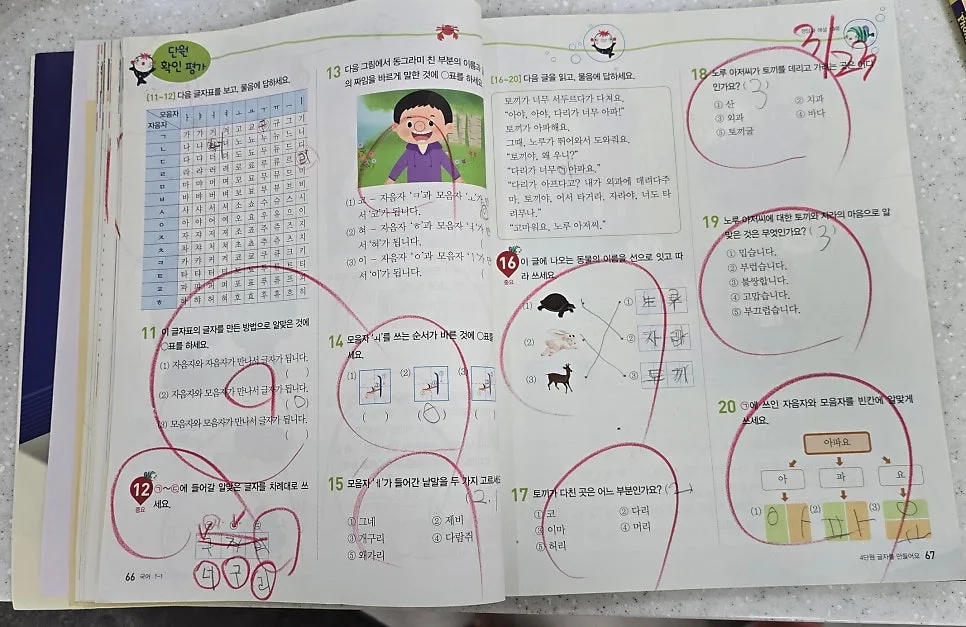 단원
확인 평가
[11~12] 다음 글자표를 보고, 물음에 답하세요.
모음자
자음자
11 이 글자표의 글자를 만든 방법으로 알맞은 것에
○표를 하세요.
(1) 자음자와 자음자가 만나서 글자가 됩니다.
( )
(2) 자음자와 모음자가 만나서 글자가 됩니다.
(0)
(3) 모음자와 모음자가 만나서 글자가 됩니다.
( )
12 ㉠~㉢에 들어갈 알맞은 글자를 차례대로 쓰
세요.
중요
너 구 리
66 국어 1-1
13 다음 그림에서 동그라미 친 부분의 이름과
의 짜임을 바르게 말한 것에 ○표를 하세요.
(1) 코 - 자음자 'ㅋ'과 모음자 'ㅗ'가
서 '코'가 됩니다.
(2) 혀 - 자음자 'ㅎ'과 모음자 'ㅕ'가
서 '혀'가 됩니다.
(3) 이 - 자음자 'ㅇ'과 모음자 'ㅣ'가
서 '이'가 됩니다.
14 모음자 'ㅢ'를 쓰는 순서가 바른 것에 ○표를
세요.
(1) (2) (3)
( ) (0) (
15 모음자 'ㅔ'가 들어간 낱말을 두 가지 고르세
① 그네 ② 제비
③ 개구리 ④ 다람쥐
⑤ 왜가리
[16~20] 다음 글을 읽고, 물음에 답하세요.
토끼가 너무 서두르다가 다쳐요.
"아야, 아야, 다리가 너무 아파!"
토끼가 아파해요.
그때, 노루가 뛰어와서 도와줘요.
"토끼야, 왜 우니?"
"다리가 너무 ㉠아파요."
"다리가 아프다고? 내가 외과에 데려다주
마. 토끼야, 어서 타거라. 자라야, 너도 타
려무나."
"고마워요, 노루 아저씨."
16 이 글에 나오는 동물의 이름을 선으로 잇고 따
라 쓰세요.
중요
(1) ① 노루
(2) ② 자라
(3) ③ 토끼
17 토끼가 다친 곳은 어느 부분인가요? (2)
① 코 ② 다리
③ 이마 ④ 머리
⑤ 허리
3/29
18 노루 아저씨가 토끼를 데리고 가려는 곳은 어디
인가요? (3)
① 산 ② 치과
③ 외과 ④ 바다
⑤ 토끼굴
19 노루 아저씨에 대한 토끼와 자라의 마음으로 알
맞은 것은 무엇인가요? (3)
① 밉습니다.
② 부럽습니다.
③ 불쌍합니다.
④ 고맙습니다.
⑤ 부끄럽습니다.
20 ㉠에 쓰인 자음자와 모음자를 빈칸에 알맞게
쓰세요.
아파요
아 파 요
(1) ㅇ ㅏ (2) ㅍ ㅏ (3) ㅇ ㅛ
4단원 글자를 만들어요 67